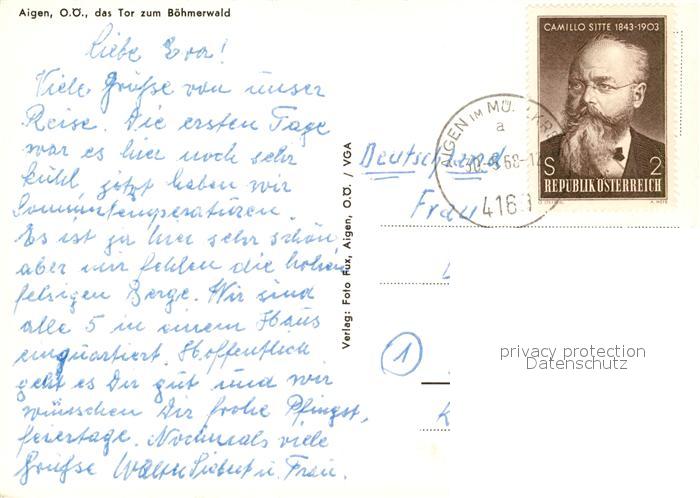 Aigen, O.Ö., das Tor zum Böhmerwald
Liebe Eva!
Viele Grüße von unser
Reise. Die ersten Tage
war es hier noch sehr
kühl, jetzt haben wir
Sommertemperatüren.
Es ist ja hier sehr schön,
aber mir fehlen die hohen
felsigen Berge. Wir sind
alle 5 in einem Haus
einquartiert. Hoffentlich
geht es Dir gut und wir
wünschen Dir frohe Pfingst,
feiertage. Nochmals viele
Grüße Walter u. Frau.
Verlag: Foto Fux, Aigen, O.Ö. / VGA
CAMILLO SITTE 1843-1903
S 2
REPUBLIK ÖSTERREICH
AIGEN IM
a
68-1
416
Deutschland
Frau
1
privacy protection
Datenschutz